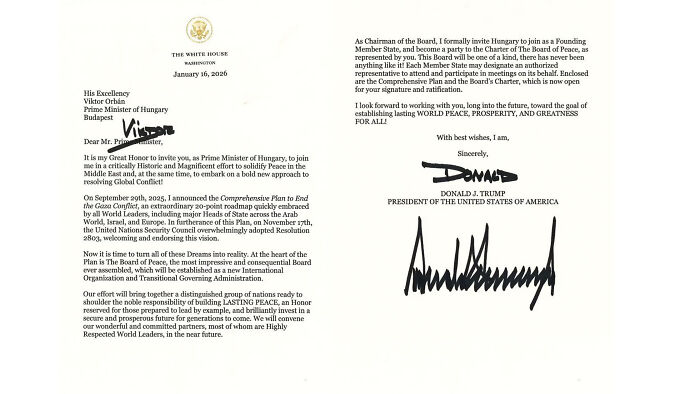 THE WHITE HOUSE
WASHINGTON
January 16, 2026
His Excellency
Viktor Orbán
Prime Minister of Hungary
Budapest
Viktor
Dear Mr. Prime Minister,
It is my Great Honor to invite you, as Prime Minister of Hungary, to join
me in a critically Historic and Magnificent effort to solidify Peace in the
Middle East and, at the same time, to embark on a bold new approach to
resolving Global Conflict!
On September 29th, 2025, I announced the Comprehensive Plan to End
the Gaza Conflict, an extraordinary 20-point roadmap quickly embraced
by all World Leaders, including major Heads of State across the Arab
World, Israel, and Europe. In furtherance of this Plan, on November 17th,
the United Nations Security Council overwhelmingly adopted Resolution
2803, welcoming and endorsing this vision.
Now it is time to turn all of these Dreams into reality. At the heart of the
Plan is The Board of Peace, the most impressive and consequential Board
ever assembled, which will be established as a new International
Organization and Transitional Governing Administration.
Our effort will bring together a distinguished group of nations ready to
shoulder the noble responsibility of building LASTING PEACE, an Honor
reserved for those prepared to lead by example, and brilliantly invest in a
secure and prosperous future for generations to come. We will convene
our wonderful and committed partners, most of whom are Highly
Respected World Leaders, in the near future.
As Chairman of the Board, I formally invite Hungary to join as a Founding
Member State, and become a party to the Charter of The Board of Peace, as
represented by you. This Board will be one of a kind, there has never been
anything like it! Each Member State may designate an authorized
representative to attend and participate in meetings on its behalf. Enclosed
are the Comprehensive Plan and the Board's Charter, which is now open
for your signature and ratification.
I look forward to working with you, long into the future, toward the goal of
establishing lasting WORLD PEACE, PROSPERITY, AND GREATNESS
FOR ALL!
With best wishes, I am,
Sincerely,
DONALD
DONALD J. TRUMP
PRESIDENT OF THE UNITED STATES OF AMERICA